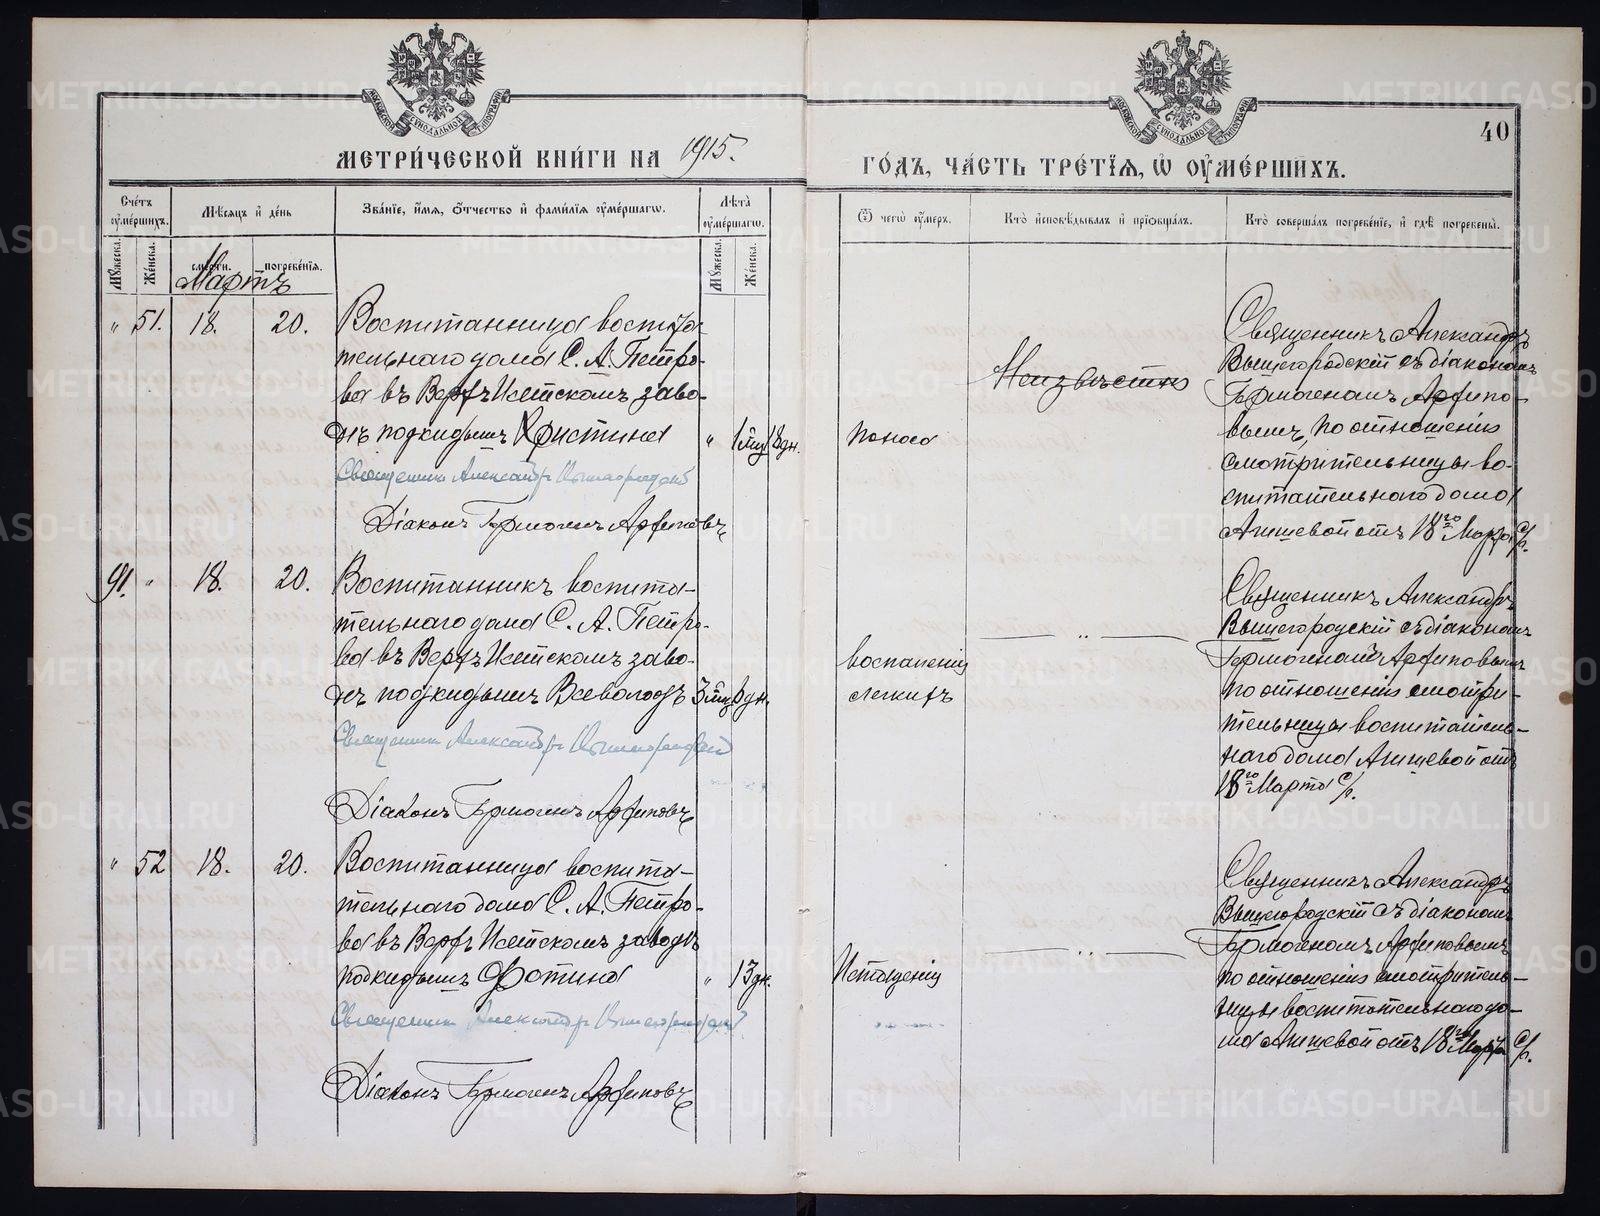 МЕТРИ́ЧЕСКОЙ КНИ́ГИ НА 1915.
ГО́ДЪ, ЧА́СТЬ ТРЕ́ТЇѦ, Ѡ҆ ОУ҆МЕ́РШИХЪ.
40
Сче́тъ оу҆ме́ршихъ.
Мѣ́сяцъ и҆ де́нь
Зва́нїе, и҆́мя, о҆́тчество и҆ фами́лїя оу҆ме́ршагѡ.
Лѣ́та оу҆ме́ршагѡ.
Ѿ чегѡ̀ оу҆́меръ.
Кто̀ и҆сповѣ́дывалъ и҆ прїѡбща́лъ.
Кто̀ соверша́лъ погребе́нїе, и҆ гдѣ̀ погребены̀.
Мꙋ́жеска.
Же́нска.
сме́рти.
погребе́нїя.
Мꙋ́жеска.
Же́нска.
Мартъ
" 51. 18. 20.
Воспитанница воспита-
тельнаго дома С. А. Петро-
ва въ Верхъ Исетскомъ заво-
дѣ подкидышъ Христина
" 1 мц 18 дн.
Священникъ Александръ Вышегородскій
Діаконъ Гермогенъ Архиповъ
Поноса
Неизвѣстно
Священникъ Александръ
Вышегородскій съ діакономъ
Гермогеномъ Архипо-
вымъ, по отношенію
смотрительницы во-
спитательнаго дома
Агишевой отъ 18го Марта с/г.
91. " 18. 20.
Воспитанникъ воспита-
тельнаго дома С. А. Петро-
ва въ Верхъ Исетскомъ заво-
дѣ подкидышъ Всеволодъ
3 мц 8 дн.
Священникъ Александръ Вышегородскій
Діаконъ Гермогенъ Архиповъ
воспаленія
легкихъ
— " —
Священникъ Александръ
Вышегородскій съ діакономъ
Гермогеномъ Архиповымъ
по отношенію смотри-
тельницы воспитатель-
наго дома Агишевой отъ
18го Марта с/г.
" 52 18. 20.
Воспитанница воспита-
тельнаго дома С. А. Петро-
ва въ Верхъ Исетскомъ заводѣ
подкидышъ Фотина
" 13 дн.
Священникъ Александръ Вышегородскій
Діаконъ Гермогенъ Архиповъ
Истощенія
— " —
Священникъ Александръ
Вышегородскій съ діакономъ
Гермогеномъ Архиповымъ
по отношенію смотритель-
ницы воспитательнаго до-
ма Агишевой отъ 18го Марта с/г.
METRIKI.GASO-URAL.RU